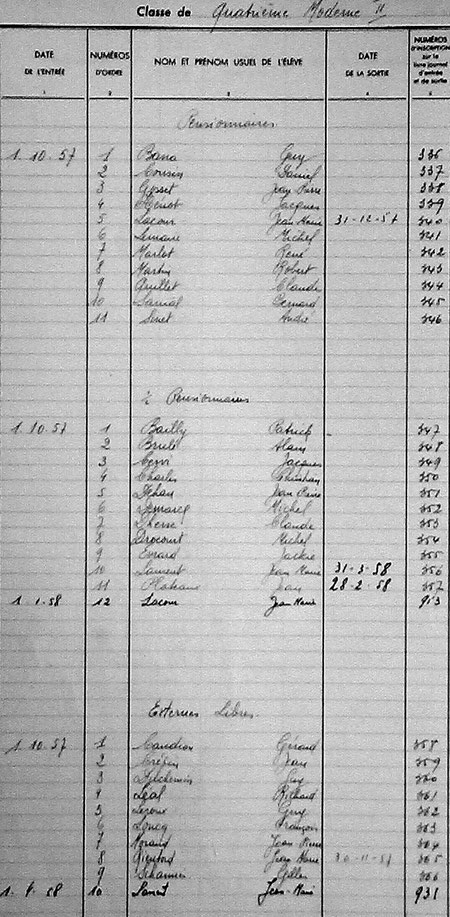 Classe de Quatrième Moderne II
DATE DE L'ENTRÉE NUMÉROS D'ORDRE NOM ET PRÉNOM USUEL DE L'ÉLÈVE DATE DE LA SORTIE NUMÉROS D'INSCRIPTION sur le livre journal d'entrée et de sortie
1 2 3 4 5
Pensionnaires
1.10.57 1 Bana Guy 336
2 Cousin Daniel 337
3 Gosset Jean Pierre 338
4 Jacques 339
5 Lacour Jean Marie 31-12-57 340
6 Lemaire Michel 341
7 Marlot René 342
8 Martin Robert 343
9 Quillet Claude 344
10 Bernard 345
11 Sinet André 346
½ Pensionnaires
1.10.57 1 Bailly Patrick 347
2 Brulé Alain 348
3 Jacques 349
4 Charles Christian 350
5 Dehan Jean Pierre 351
6 Demarcq Michel 352
7 Claude 353
8 Drocourt Michel 354
9 Evrard Jackie 355
10 Laurent Jean Marie 31-3-58 356
11 Jean 28-2-58 357
1.1.58 12 Lacour Jean Marie 913
Externes Libres
1.10.57 1 Caudion Gérard 358
2 Crépin Jean 359
3 Duchemin Guy 360
4 Léal Richard 361
5 Leroux Guy 362
6 Loucq François 363
7 Morand Jean Pierre 364
8 Jean Marie 30-11-57 365
9 Gilles 366
1.4.58 10 Laurent Jean-Marie 931